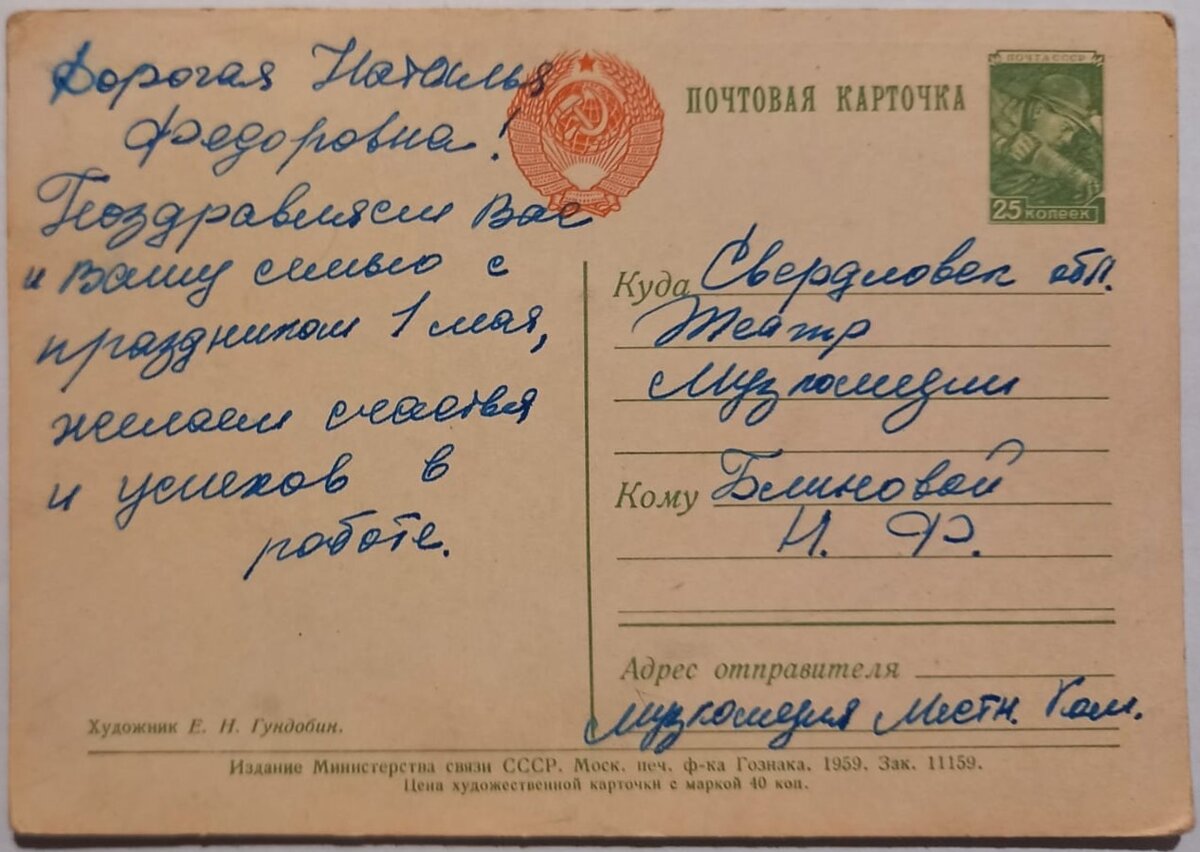 Дорогая Наталья
Федоровна!
Поздравляем Вас
и Вашу семью с
праздником 1 мая,
желаем счастья
и успехов в
работе.
Художник Е. Н. Гундобин.
ПОЧТОВАЯ КАРТОЧКА
ПОЧТА СССР
25 КОПЕЕК
Куда Свердловск обл.
Театр
Музкомедии
Кому Блиновой
Н. Ф.
Адрес отправителя
Музкомедия Местн. Ком.
Издание Министерства связи СССР. Моск. печ. ф-ка Гознака. 1959. Зак. 11159.
Цена художественной карточки с маркой 40 коп.